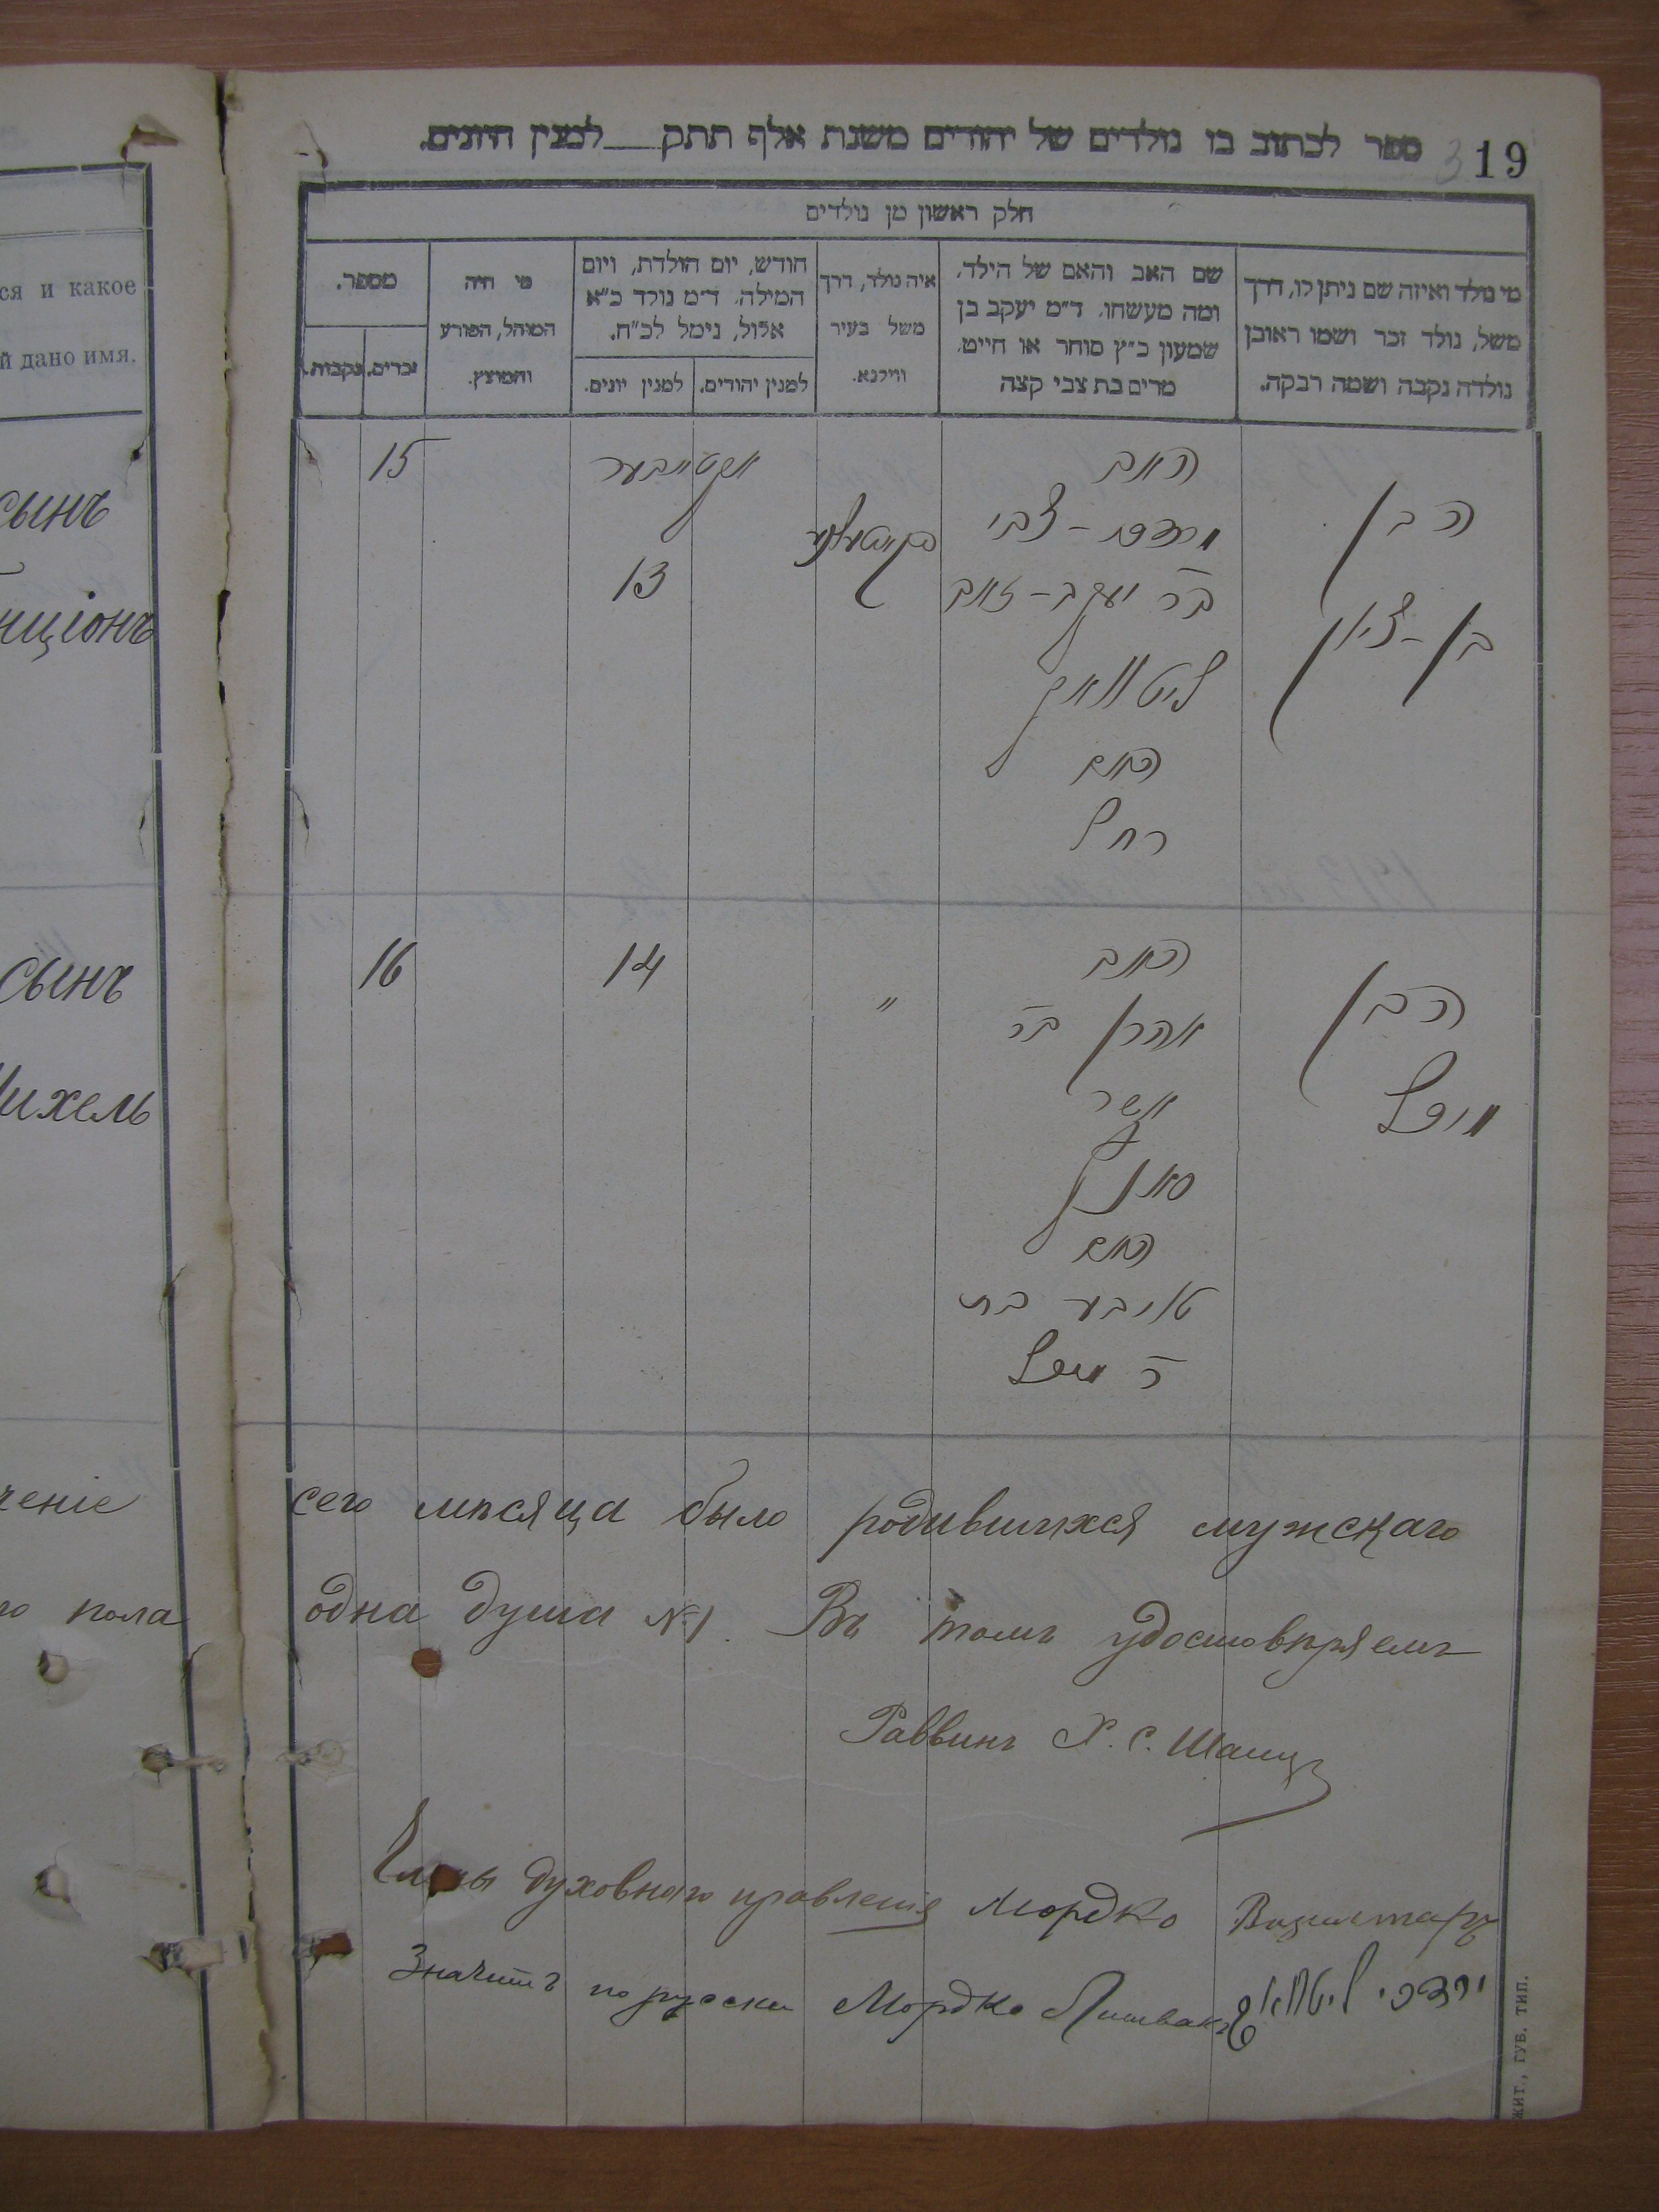 ся и какое
й дано имя.
сынъ
нціонъ
сынъ
Михель
ченіе
го пола
19
ספר לכתוב בו נולדים של יהודים משנת אלף תתק___למנין היונים.
חלק ראשון מן נולדים
מי נולד ואיזה שם ניתן לו, דרך
משל, נולד זכר ושמו ראובן
נולדה נקבה ושמה רבקה.
שם האב והאם של הילד,
ומה מעשהו. ד״מ יעקב בן
שמעון כ״ץ סוחר או חייט.
מרים בת צבי קצה
איה נולד, דרך
משל בעיר
ווילנא.
חודש, יום הולדת, ויום
המילה. ד״מ נולד כ״א
אלול, נימל לכ״ח.
למנין יהודים.
למנין יונים.
מי היה
המוהל, הפורע
והמוצץ.
מספר.
זכרים.
נקבות.
הבן
בן-ציון
האב
מרדכי-צבי
בר יעקב-זאב
ליטוואק
האם
רחל
אקטיабער
13
15
הבן
מיכל
האב
אהרן בר
אשר
האם
טויבע בת
ר מיכל
"
14
16
сего мѣсяца было родившихся мужскаго
одна душа №1. Въ томъ удостовѣряемъ
Раввинъ Х. С. Шацъ
Члены духовнаго правленія Мордко
Значитъ по русски Мордко Литвакъ
מרדכי ליטוואק
ЖИТ., ГУБ. ТИП.